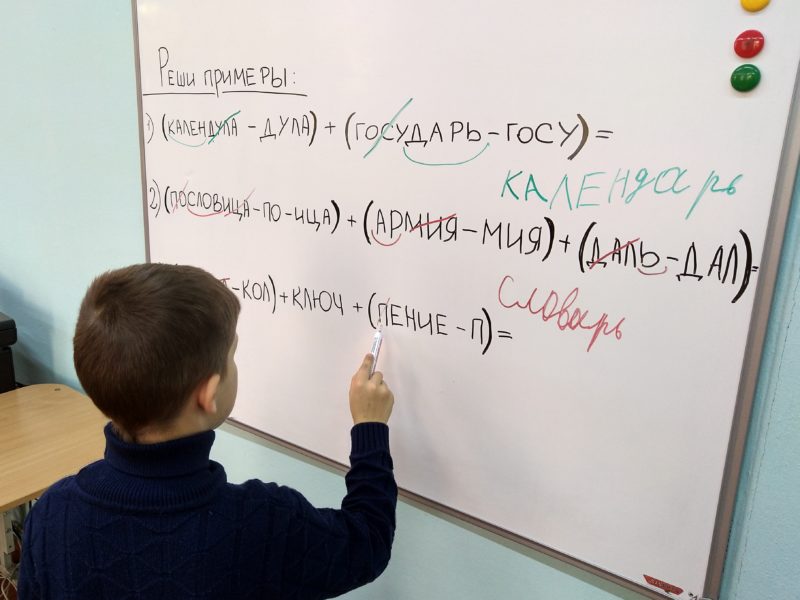 Реши примеры:
1) (КАЛЕНДУЛА - ДУЛА) + (ГОСУДАРЬ - ГОСУ) =
КАЛЕНдарь
2) (ПОСЛОВИЦА - ПО - ИЦА) + (АРМИЯ - МИЯ) + (ДАЛЬ - ДАЛ) =
Словарь
- КОЛ) + КЛЮЧ + (ПЕНИЕ - П) =